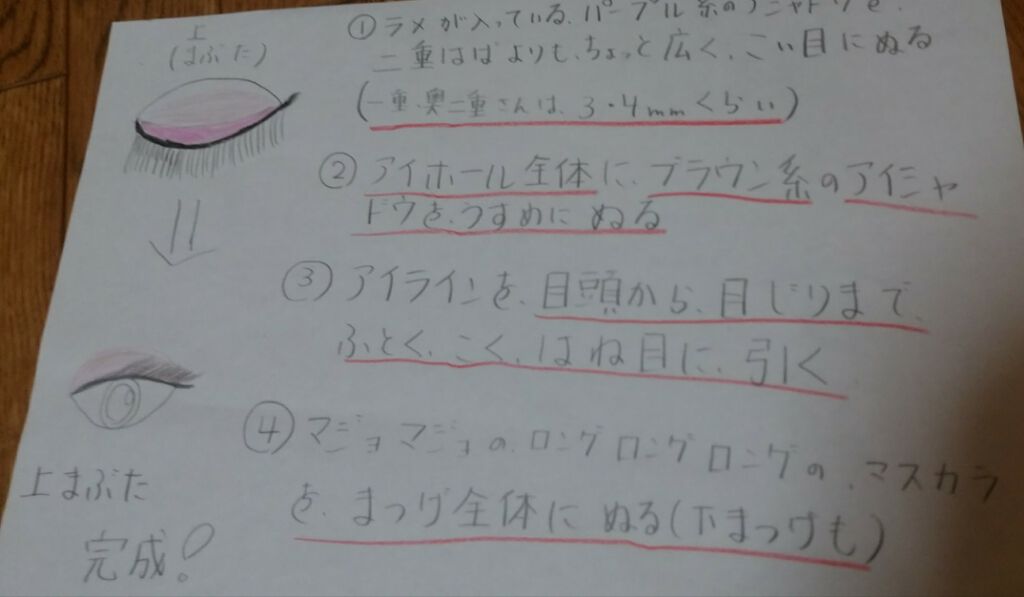 上
(まぶた)
① ラメが入っている、パープル系のアイシャドウを、
二重はばよりも、ちょっと広く、こい目にぬる
(一重、奥二重さんは、3・4mmくらい)
② アイホール全体に、ブラウン系のアイシャ
ドウを、うすめにぬる
③ アイラインを、目頭から、目じりまで、
ふとく、こく、はね目に、引く
④ マジョマジョの、ロングロングロングの、マスカラ
を、まつげ全体にぬる(下まつげも)
上まぶた
完成!